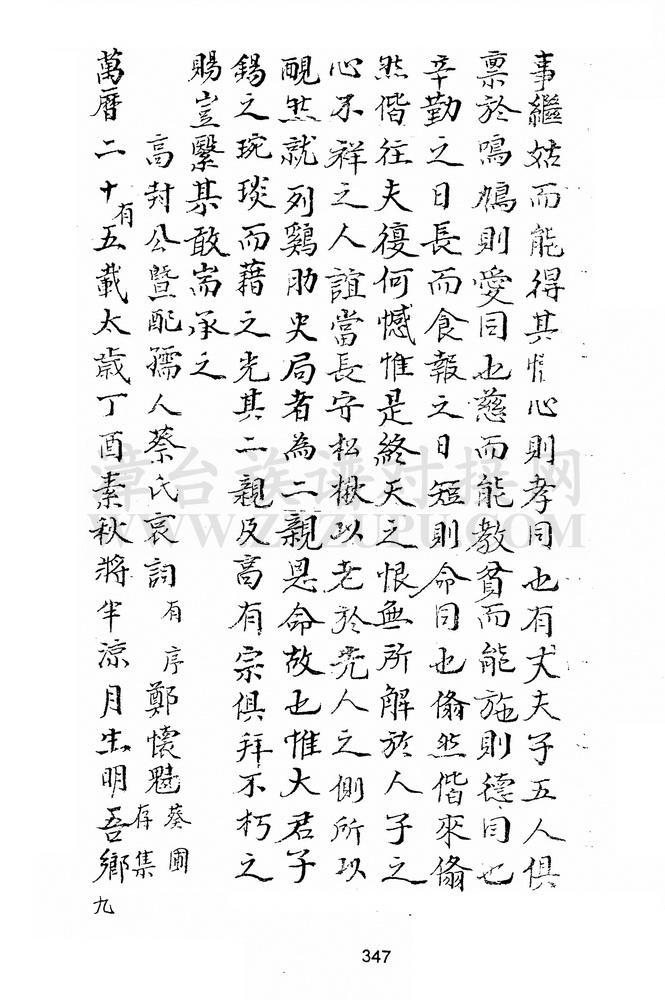 事繼姑而能得其懽心則孝同也有丈夫子五人俱
禀於鳴鳲則愛同也慈而能教貧而能施則德同也
辛勤之日長而食報之日短則命同也翛然偕來翛
然偕往夫復何憾惟是終天之恨無所解於人子之
心不祥之人誼當長守松楸以老於兆人之側所以
靦然就列鷄肋史局者為二親恩命故也惟大君子
錫之琬琰而藉之光其二親及高有宗俱拜不朽之
賜豈繄某敢耑承之
高封公暨配孺人蔡氏哀詞有序鄭懷魁葵圃存集
萬曆二十有五載太歲丁酉素秋將半涼月生明吾鄉
九
347
漳台族譜對接網
WWW.ZTZUPU.COM